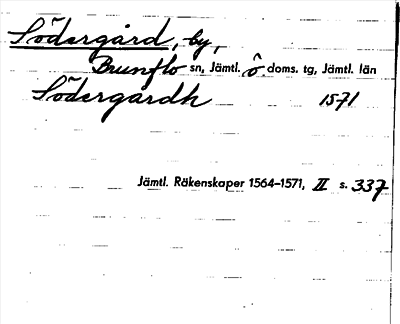 Södergård, by,
Brunflo sn, Jämtl. ö. doms. tg, Jämtl. län
Södergardh 1571
Jämtl. Räkenskaper 1564–1571, II s. 337